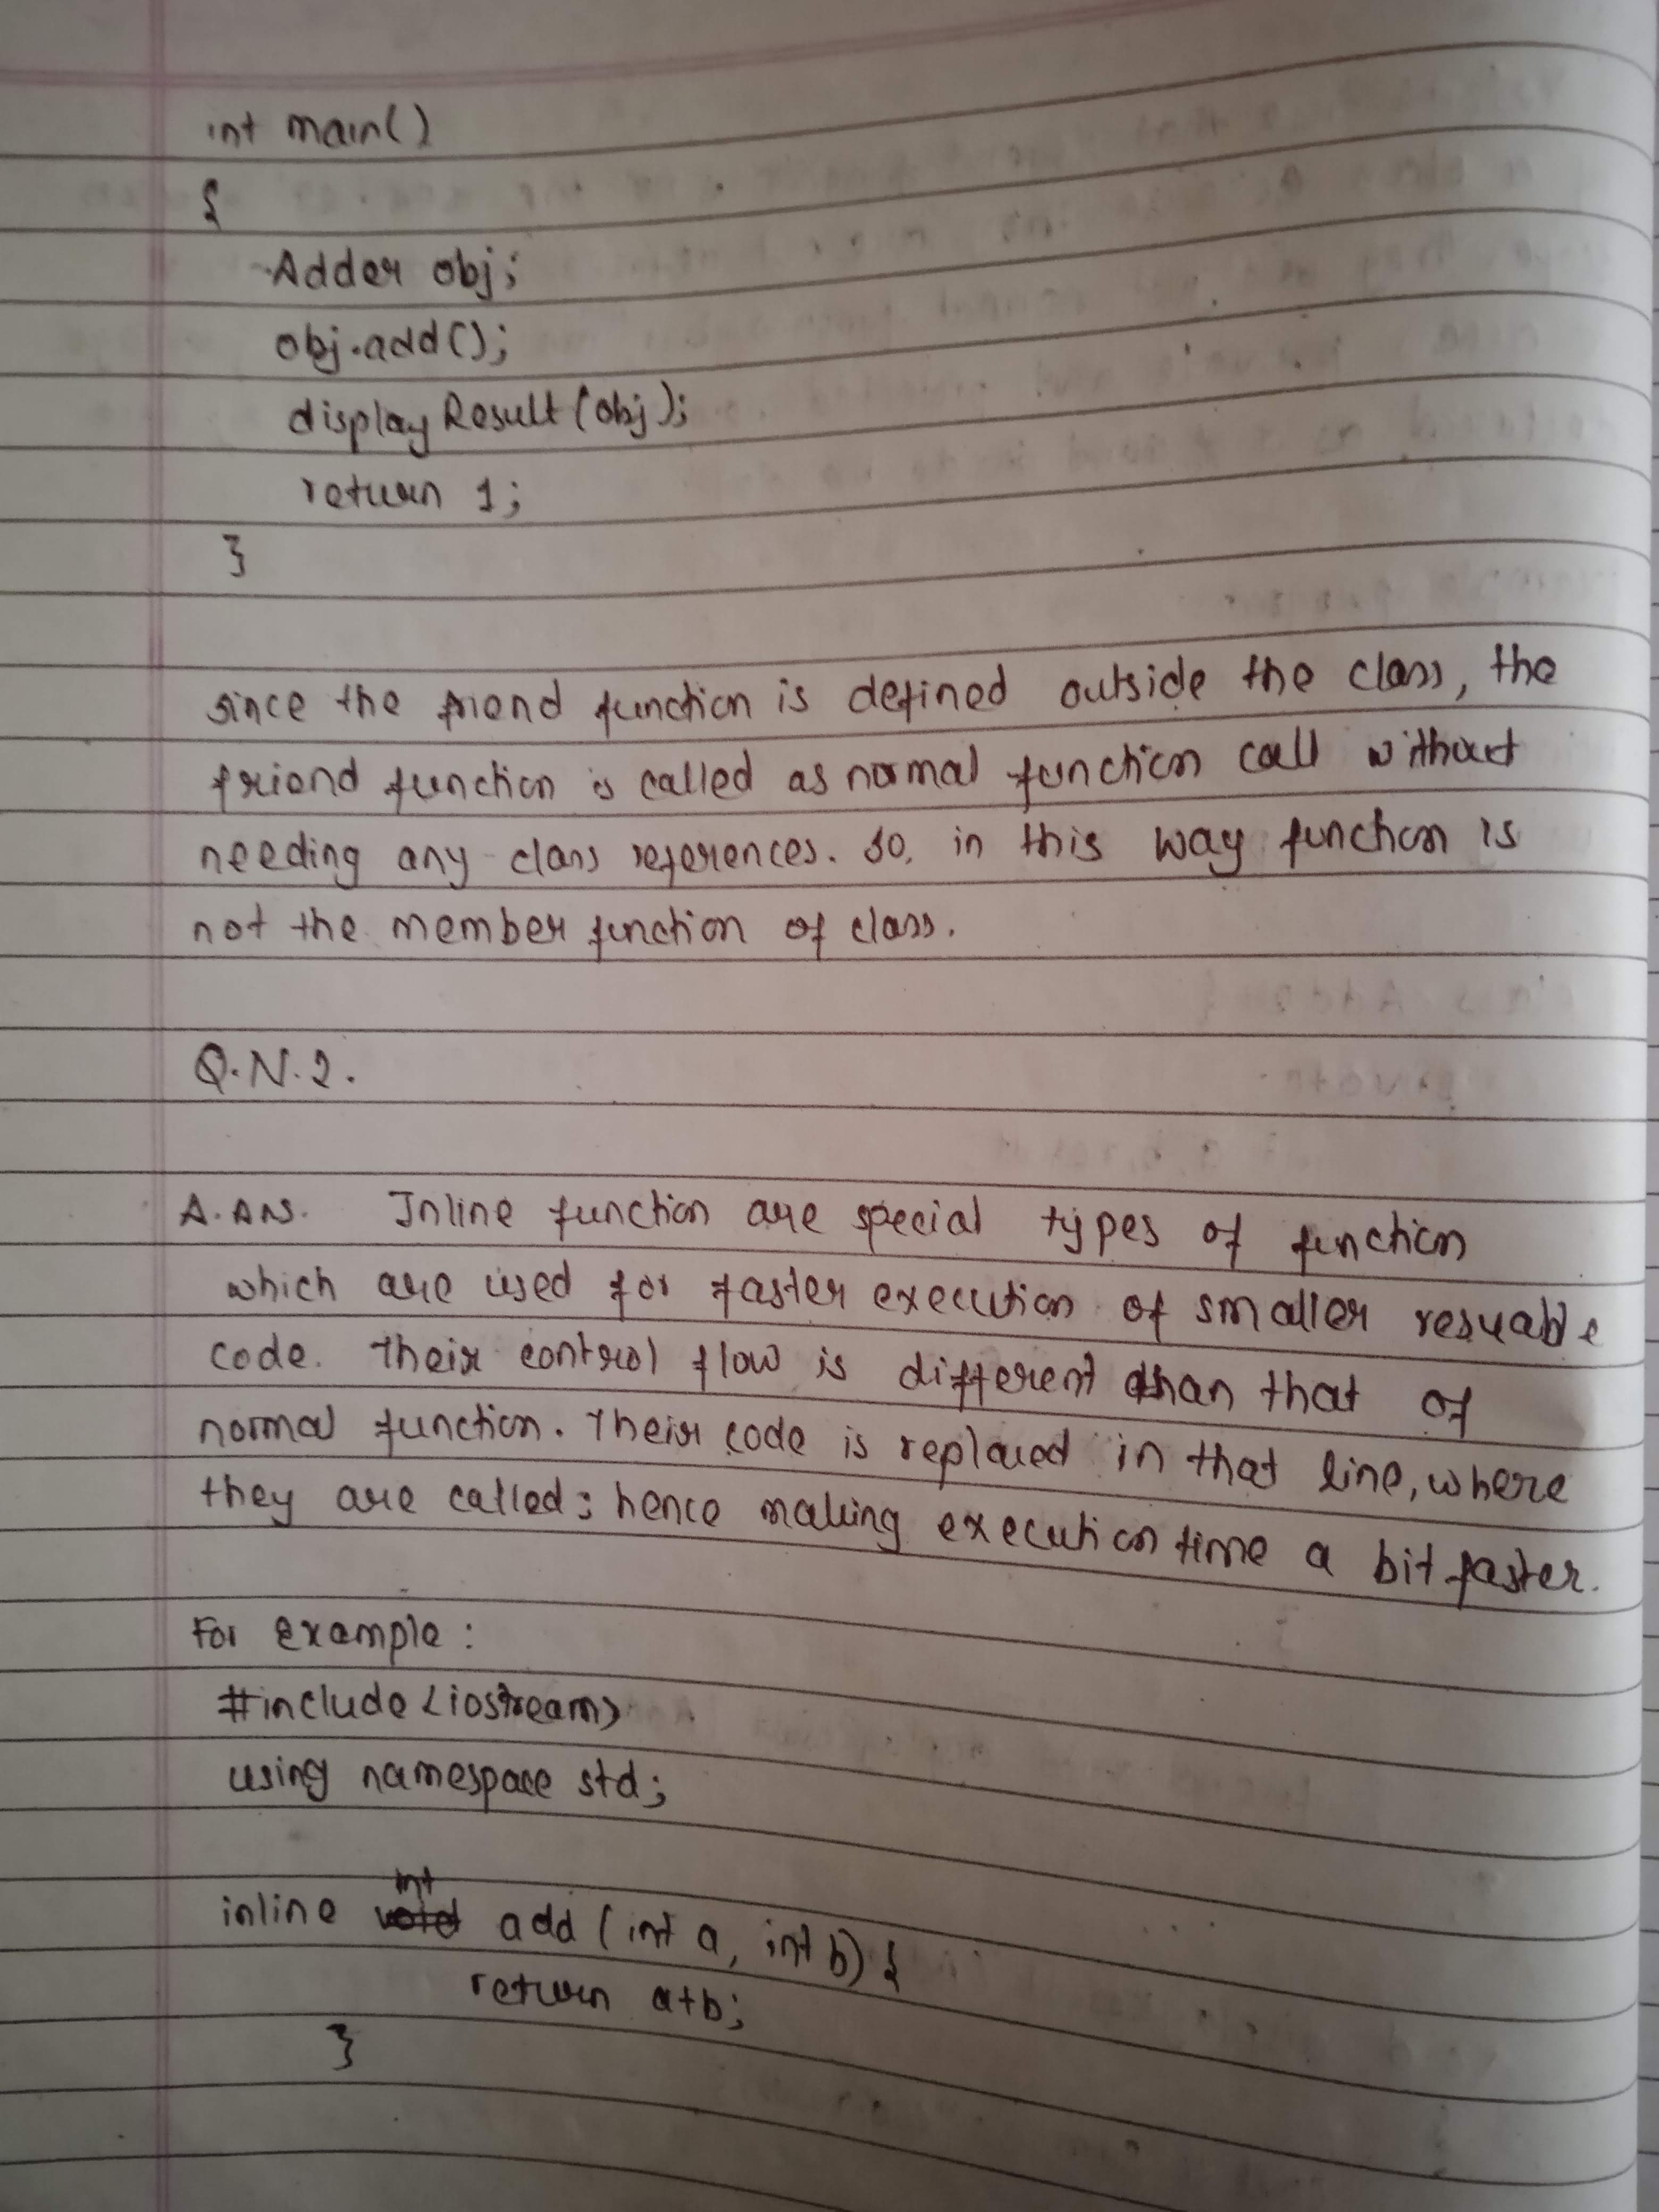 int main()
{
Adder obj;
obj.add();
displayResult(obj);
return 1;
}
since the friend function is defined outside the class, the
friend function is called as normal function call without
needing any class references. so, in this way function is
not the member function of class.
Q.N.2.
A.Ans. Inline function are special types of function
which are used for faster execution of smaller resuable
code. Their control flow is different than that of
normal function. Their code is replaced in that line, where
they are called; hence making execution time a bit faster.
For example:
#include<iostream>
using namespace std;
inline int add (int a, int b) {
return a+b;
}